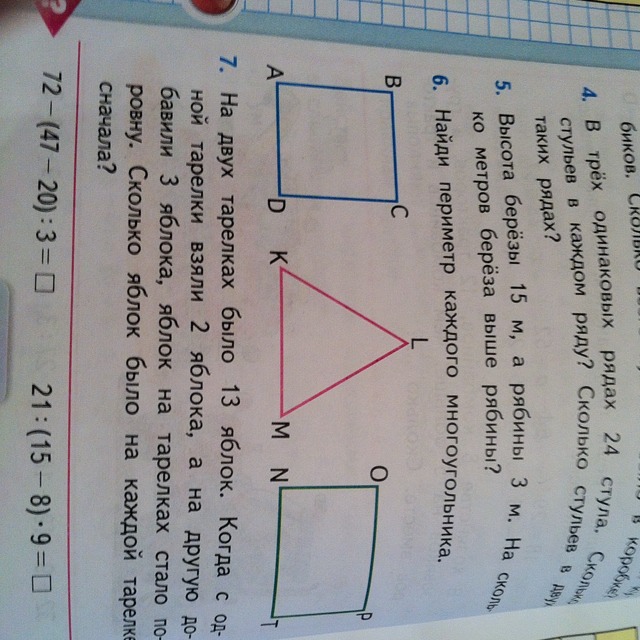 биков. Сколько
4. В трёх одинаковых рядах 24 стула. Сколько
стульев в каждом ряду? Сколько стульев в двух
таких рядах?
5. Высота берёзы 15 м, а рябины 3 м. На сколь
ко метров берёза выше рябины?
6. Найди периметр каждого многоугольника.
B C L O P
A D K M N T
7. На двух тарелках было 13 яблок. Когда с од-
ной тарелки взяли 2 яблока, а на другую до-
бавили 3 яблока, яблок на тарелках стало по-
ровну. Сколько яблок было на каждой тарелке
сначала?
72 − (47 − 20) : 3 = □ 21 : (15 − 8) · 9 = □
?